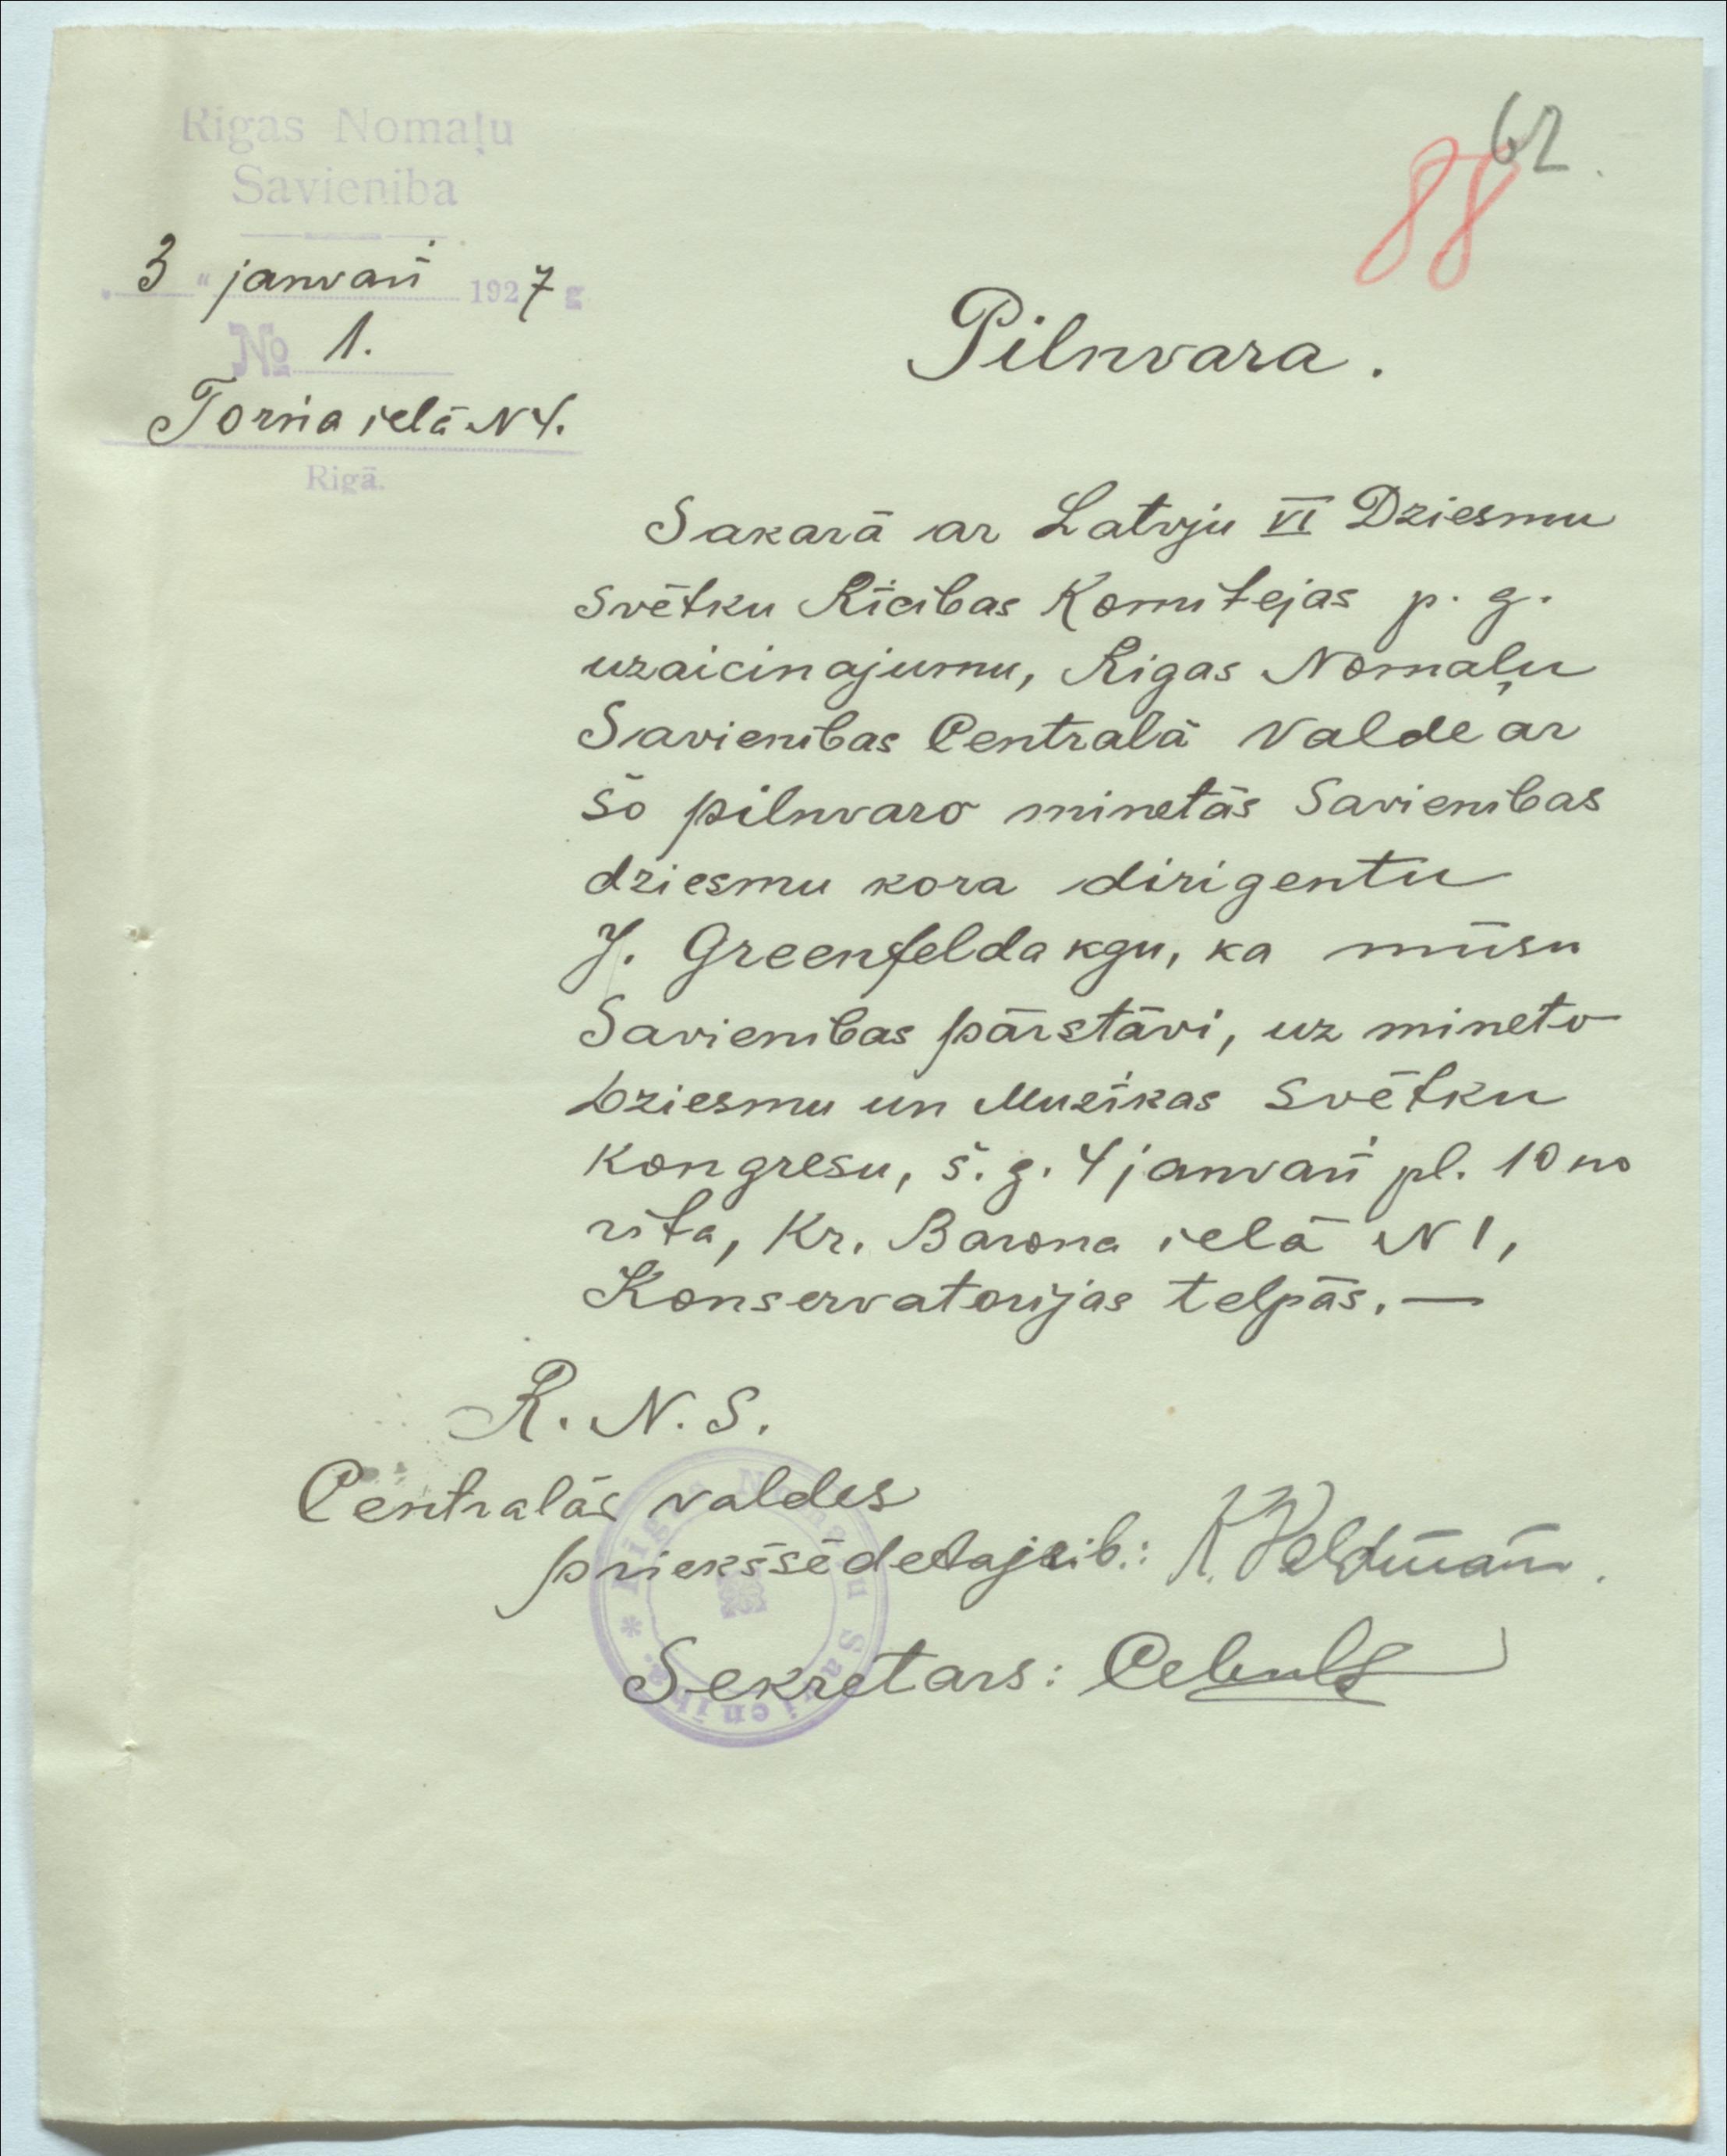 Rigas Nomaļu
Savieniba
3 " janvarī 1927 g
№ 1.
Torņa ielā N 4.
Rigā.
62.
88
Pilnvara.
Sakarā ar Latvju VI Dziesmu
svētku Rīcibas Komitejas p. g.
uzaicinajumu, Rigas Nomaļu
Savienibas Centralā Valde ar
šo pilnvaro minetās Savienibas
dziesmu kora dirigentu
J. Greenfelda kgu, ka mūsu
Savienibas pārstāvi, uz mineto
Dziesmu un Muzikas Svētku
Kongresu, š. g. 4 janvarī pl. 10 no
rita, Kr. Barona ielā N 1,
Konservatorijas telpās. —
R. N. S.
Centralās valdes
priekšsēdetaja ib.: K. Veldman
Sekretars:
* Rigas Nomaļu Savieniba.